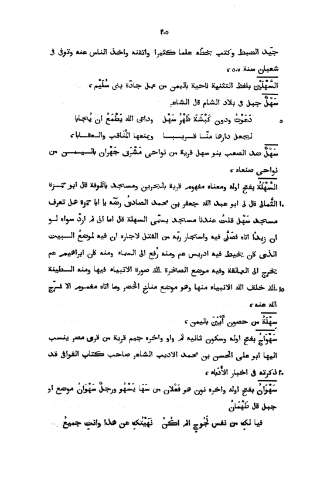 ٢٠٥
جيد الضبط وكتب بخطّه علما كثيرا واتقنه واخذ الناس عنه وتوفى فى
شعبان سنة
السَّهْلَيْن بلفظ التثنية ناحية باليمن من عمل جادة بنى سُلَيْم،
سَهَلٌ جبل فى بلاد الشام قال الشاعر
٥ دَعَوْتُ ودون كَبْشَةَ ظَهْرُ سَهَلٍ وداعى الله يَطْمَعُ ان يُجابا
ليجعل دارها منّا قريبا ويمنعها
سَهْلٌ ضد الصعب بنو سهل قرية من نواحى مَشْرَق جَهْران باليمن من
نواحى صنعاء،
السَّهْلَةُ بفتح اوله ومعناه مفهوم قرية بالبحرين ومسجد بالكوفة قال ابو حمزة
١٠ الثُّمالى قال لى ابو عبد الله جعفر بن محمد الصادق يا ابا حمزة هل تعرف
مسجد سَهْل قلت عندنا مسجد يسمى السهلة قال اما انى لم ارد سواه لو
ان زيدًا اتاه فصلّى فيه واستجار ربّه من القتل لاجاره ان فيه لموضع البيت
الذى كان يخيط فيه ادريس عم ومنه رفع الى السماء ومنه كان ابراهيم عم
يخرج الى العمالقة وفيه موضع الصخرة صورة الانبياء فيها ومنه الطينة
١٥ خلق الله الانبياء منها وهو موضع مناخ الخضر وما اتاه مغموم الا فرّج
الله عنه،
سَهْلَةُ من حصون أَبْيَنَ باليمن،
سَهْوَاجُ بفتح اوله وسكون ثانيه ثم واو واخره جيم قرية من قرى مصر ينسب
اليها ابو على الحسن بن محمد الاديب الشاعر صاحب كتاب القوافى قد
٢٠ ذكرته فى اخبار الأدباء،
سَهْوَانُ بفتح اوله واخره نون هو فَعْلان من سَهَا يَسْهُو ورجلٌ سَهْوَانُ موضع او
جبل قال طَهْمَانُ
فيا لكِ من نفس لَجوج الم اكنْ نَهَيْتُكِ عن هذا وانتِ جميعُ